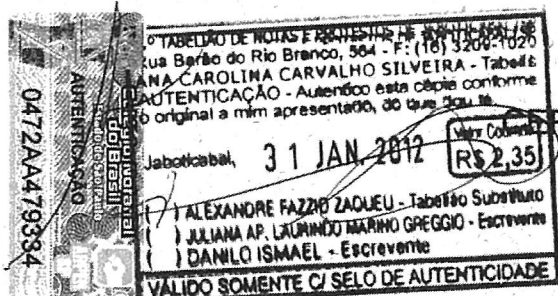 .º TABELIÃO DE NOTAS E PROTESTOS DE JABOTICABAL / SP
Rua Barão do Rio Branco, 564 - F: (16) 3209-1020
ANA CAROLINA CARVALHO SILVEIRA - Tabeliã
AUTENTICAÇÃO - Autentico esta cópia conforme
o original a mim apresentado, do que dou fé.
Jaboticabal, 31 JAN. 2012
Valor Cobrado
R$ 2,35
( ) ALEXANDRE FAZZIO ZAQUEU - Tabelião Substituto
( ) JULIANA AP. LAURINDO MARINO GREGGIO - Escrevente
( ) DANILO ISMAEL - Escrevente
VÁLIDO SOMENTE C/ SELO DE AUTENTICIDADE
Colégio Notarial
do Brasil
AUTENTICAÇÃO
0472AA479334